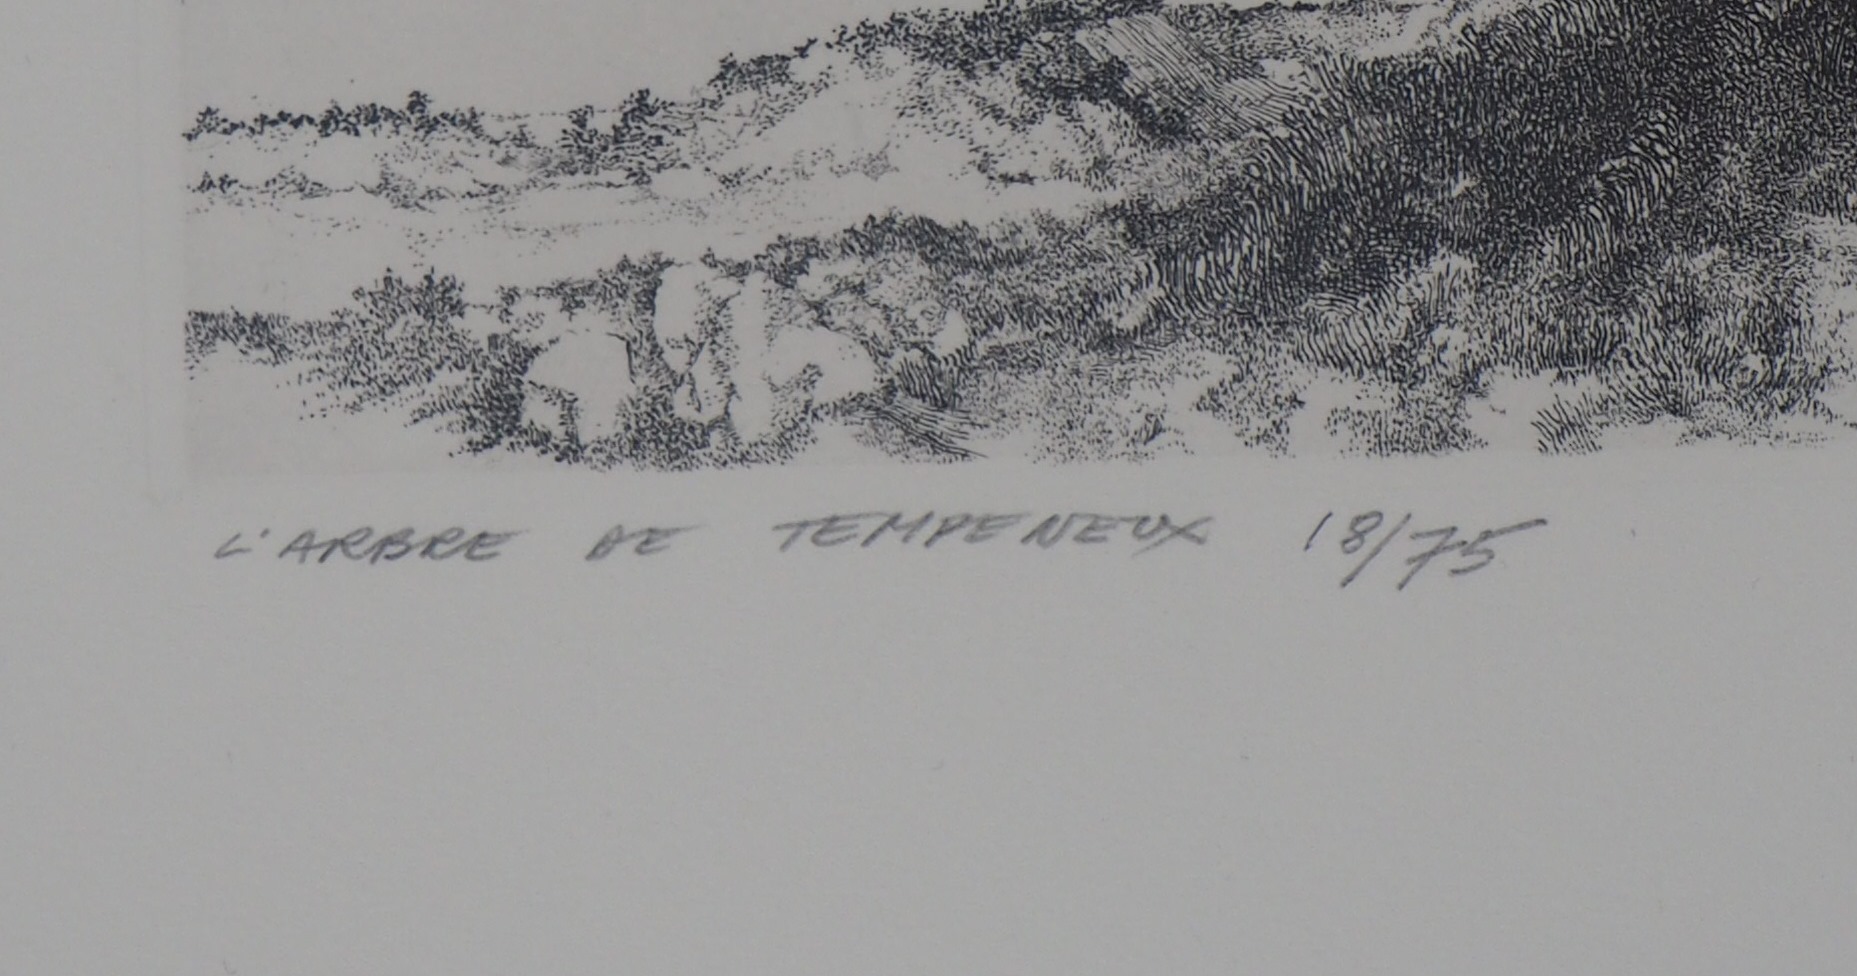 L'ARBRE DE TEMPENEUX 18/75